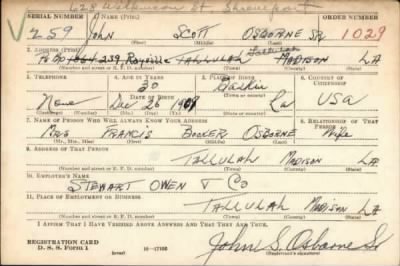 628 Wilkinson St. Shreveport
SERIAL NUMBER 1. NAME (Print) ORDER NUMBER
V 259 JOHN SCOTT OSBORNE SR. 1029
(First) (Middle) (Last)
2. ADDRESS (Print)
239, Rayville TALLULAH MADISON LA
(Number and street or R. F. D. number) (Town) (County) (State)
3. TELEPHONE 4. AGE IN YEARS 5. PLACE OF BIRTH 6. COUNTRY OF CITIZENSHIP
30 Baskin
DATE OF BIRTH (Town or county)
None Dec 26 La USA
(Exchange) (Number) (Mo.) (Day) (Yr.) (State or country)
7. NAME OF PERSON WHO WILL ALWAYS KNOW YOUR ADDRESS 8. RELATIONSHIP OF THAT PERSON
MRS FRANCIS BOOKER OSBORNE Wife
(Mr., Mrs., Miss) (First) (Middle) (Last)
9. ADDRESS OF THAT PERSON
TALLULAH MADISON LA
(Number and street or R. F. D. number) (Town) (County) (State)
10. EMPLOYER'S NAME
STEWART OWEN & CO
11. PLACE OF EMPLOYMENT OR BUSINESS
TALLULAH MADISON LA
(Number and street or R. F. D. number) (Town) (County) (State)
I AFFIRM THAT I HAVE VERIFIED ABOVE ANSWERS AND THAT THEY ARE TRUE.
REGISTRATION CARD
D. S. S. Form 1 16—17105 John S. Osborne Sr
(Registrant's signature)